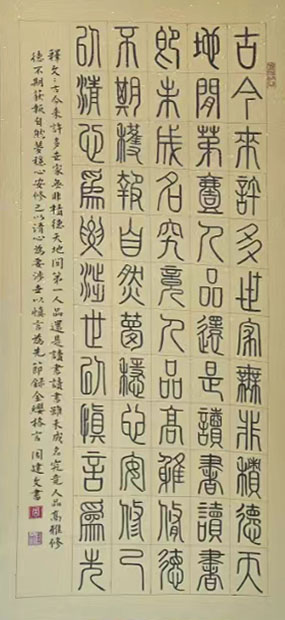 古今來許多世家無非積德天
地間第壹人品還是讀書讀書
即未成名究竟人品高雅脩德
不期穫報自然夢穩心安修己
以清心為要涉世以慎言為先
釋文：古今來許多世家無非積德天地间第一人品還是讀書讀書雖未成名究竟人品高雅修
德不期获報自然夢穩心安修己以清心為要涉世以慎言為先 節錄金纓格言 周建文書